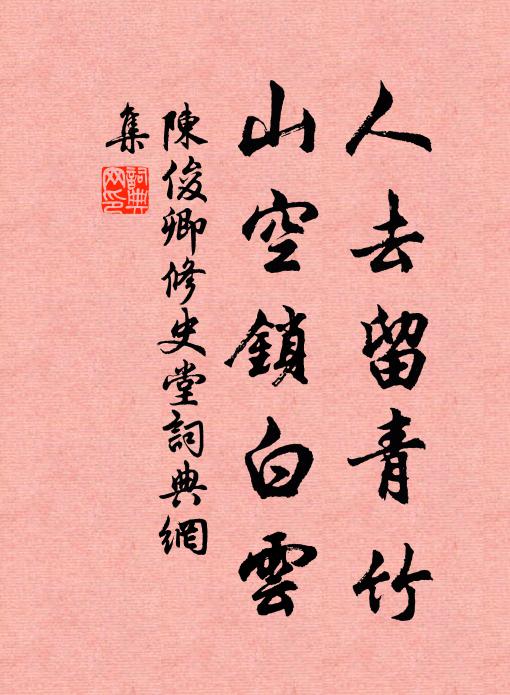 人去留青竹
山空鎖白雲
陳俊卿修史堂詞典網
集
詞典網印